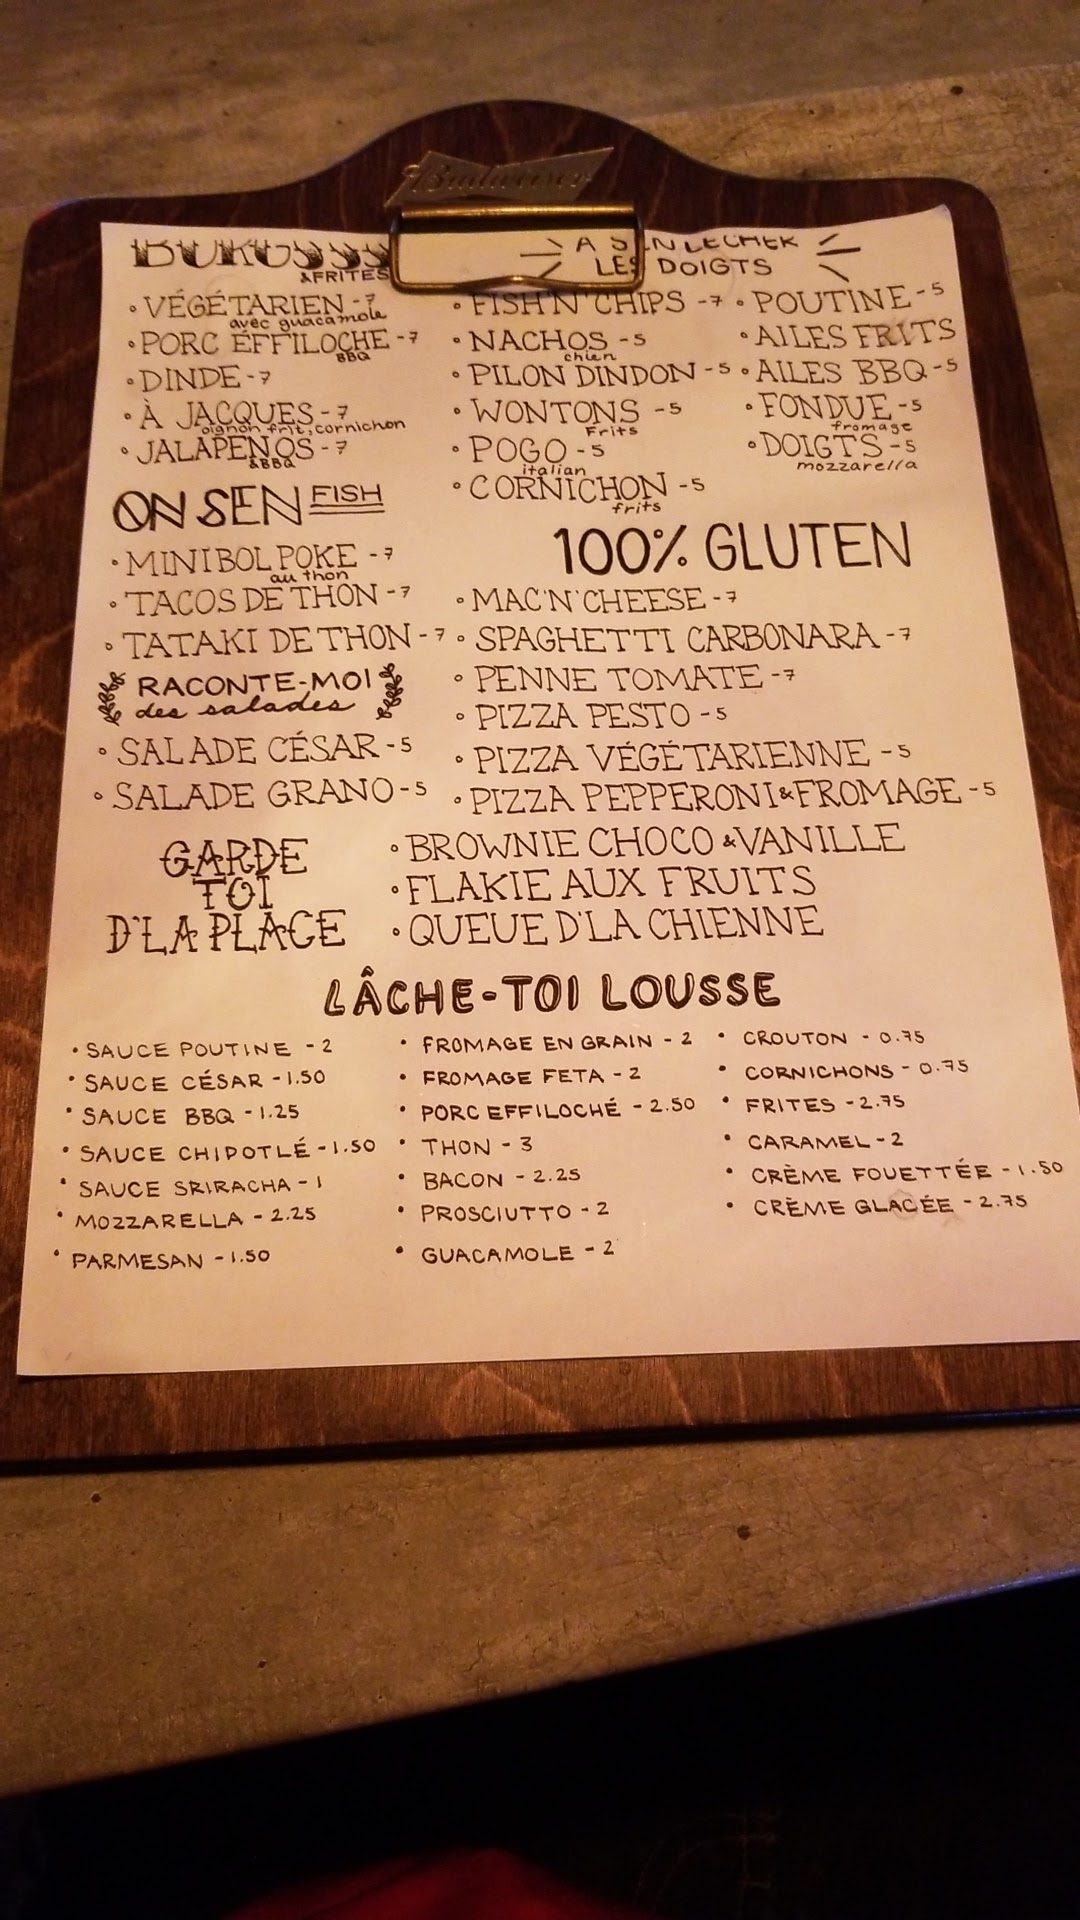 Budweiser
BURGSSS
&FRITES
• VÉGÉTARIEN - 7
avec guacamole
• PORC ÉFFILOCHE - 7
BBQ
• DINDE - 7
• À JACQUES - 7
oignon frit, cornichon
• JALAPENOS - 7
&BBQ
ON SEN FISH
• MINI BOL POKE - 7
au thon
• TACOS DE THON - 7
• TATAKI DE THON - 7
RACONTE-MOI
des salades
• SALADE CÉSAR - 5
• SALADE GRANO - 5
À S'EN LÉCHER
LES DOIGTS
• FISH'N'CHIPS - 7
• NACHOS - 5
chien
• PILON DINDON - 5
• WONTONS - 5
Frits
• POGO - 5
italian
• CORNICHON - 5
frits
• POUTINE - 5
• AILES FRITS
• AILES BBQ - 5
• FONDUE - 5
fromage
• DOIGTS - 5
mozzarella
100% GLUTEN
• MAC'N'CHEESE - 7
• SPAGHETTI CARBONARA - 7
• PENNE TOMATE - 7
• PIZZA PESTO - 5
• PIZZA VÉGÉTARIENNE - 5
• PIZZA PEPPERONI & FROMAGE - 5
GARDE
TOI
D'LA PLACE
• BROWNIE CHOCO & VANILLE
• FLAKIE AUX FRUITS
• QUEUE D'LA CHIENNE
LÂCHE-TOI LOUSSE
• SAUCE POUTINE - 2
• SAUCE CÉSAR - 1.50
• SAUCE BBQ - 1.25
• SAUCE CHIPOTLÉ - 1.50
• SAUCE SRIRACHA - 1
• MOZZARELLA - 2.25
• PARMESAN - 1.50
• FROMAGE EN GRAIN - 2
• FROMAGE FETA - 2
• PORC EFFILOCHÉ - 2.50
• THON - 3
• BACON - 2.25
• PROSCIUTTO - 2
• GUACAMOLE - 2
• CROUTON - 0.75
• CORNICHONS - 0.75
• FRITES - 2.75
• CARAMEL - 2
• CRÈME FOUETTÉE - 1.50
• CRÈME GLACÉE - 2.75